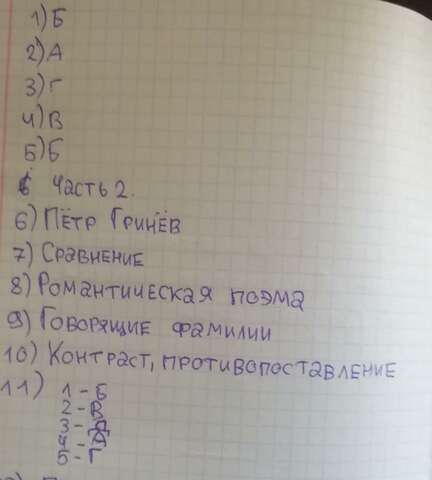 1) Б
2) А
3) Г
4) В
5) Б
Часть 2.
6) Пётр Гринёв
7) Сравнение
8) Романтическая поэма
9) Говорящие фамилии
10) Контраст, противопоставление
11)
1 - Б
2 - В
3 - Д
4 - А
5 - Г